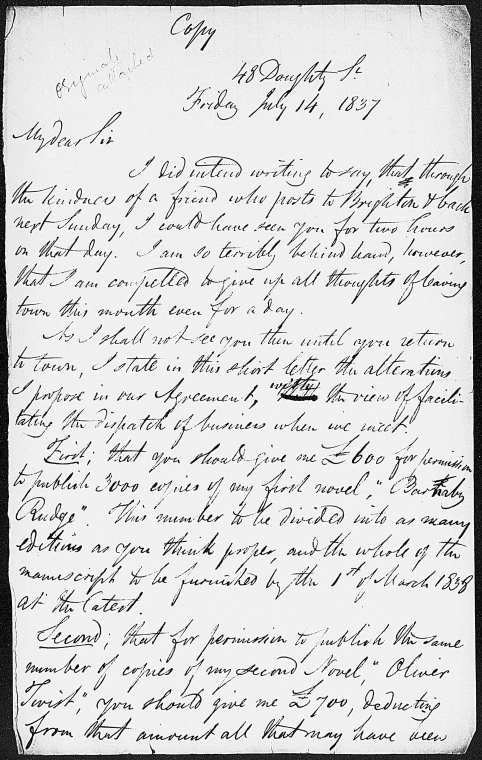 Copy
Originals
attached
48 Doughty St
Friday July 14, 1837
My dear Sir
I did intend writing to say, that, through
the kindness of a friend who posts to Brighton & back
next Sunday, I could have seen you for two hours
on that day. I am so terribly behind hand, however,
that I am compelled to give up all thoughts of leaving
town this month even for a day.
As I shall not see you then until you return
to town, I state in this short letter the alterations
I propose in our Agreement, with the view of facili-
tating the dispatch of business when we meet.
First; that you should give me £600 for permission
to publish 3000 copies of my first novel, "Barnaby
Rudge". This number to be divided into as many
editions as you think proper, and the whole of the
manuscript to be furnished by the 1st of March 1838
at the latest.
Second; that for permission to publish the same
number of copies of my second Novel, "Oliver
Twist," you should give me £700, deducting
from that amount all that may have been